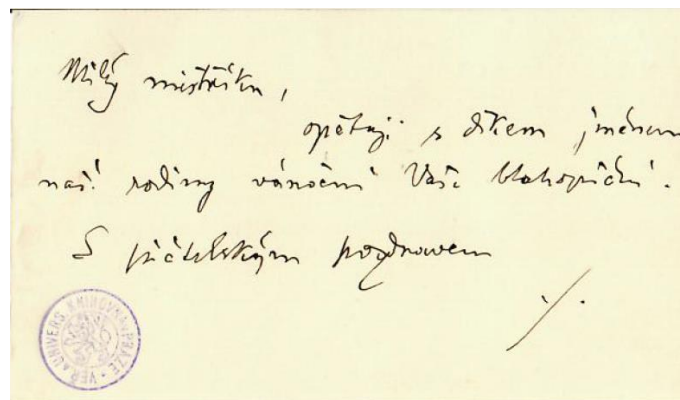 Milý mistříčku,
opětuji s díkem jménem
naší rodiny vánoční Vaše blahopřání.
S přátelským pozdravem
VEŘ. A UNIVERS. KNIHOVNA V PRAZE